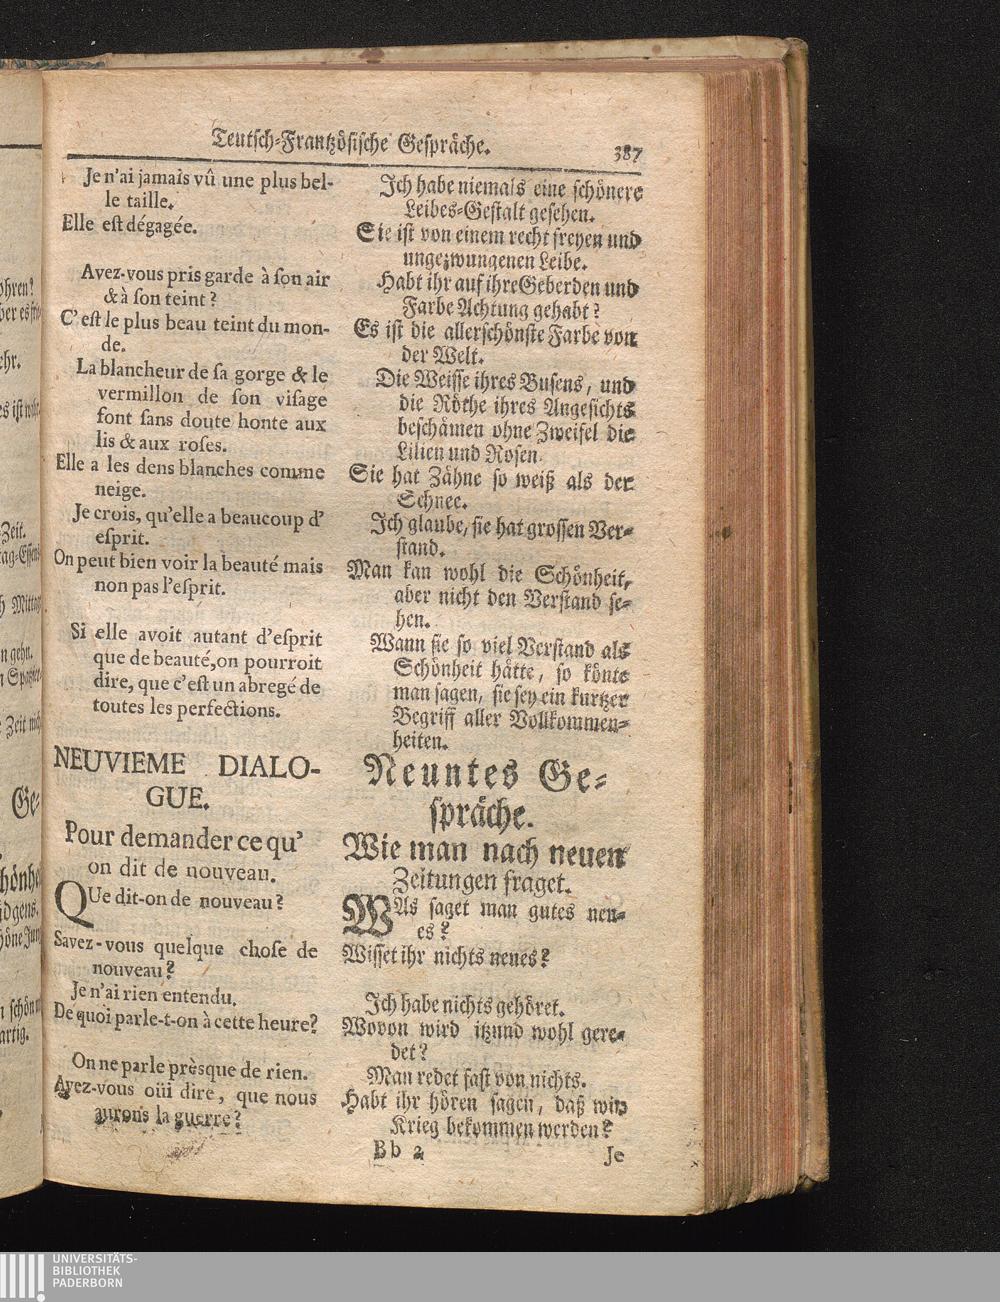 Teutsch-Frantzösische Gespräche. 387
Je n'ai jamais vû une plus bel-
le taille.
Elle est dégagée.
Avez-vous pris garde à son air
& à son teint?
C'est le plus beau teint du mon-
de.
La blancheur de sa gorge & le
vermillon de son visage
font sans doute honte aux
lis & aux roses.
Elle a les dens blanches comme
neige.
Je crois, qu'elle a beaucoup d'
esprit.
On peut bien voir la beauté mais
non pas l'esprit.
Si elle avoit autant d'esprit
que de beauté, on pourroit
dire, que c'est un abregé de
toutes les perfections.
NEUVIEME DIALO-
GUE.
Pour demander ce qu'
on dit de nouveau.
QUe dit-on de nouveau?
Savez-vous quelque chose de
nouveau?
Je n'ai rien entendu.
De quoi parle-t-on à cette heure?
On ne parle prèsque de rien.
Avez-vous oüi dire, que nous
aurons la guerre?
Ich habe niemals eine schönere
Leibes-Gestalt gesehen.
Sie ist von einem recht freyen und
ungezwungenen Leibe.
Habt ihr auf ihre Geberden und
Farbe Achtung gehabt?
Es ist die allerschönste Farbe von
der Welt.
Die Weisse ihres Busens, und
die Röthe ihres Angesichts
beschämen ohne Zweifel die
Lilien und Rosen.
Sie hat Zähne so weiß als der
Schnee.
Ich glaube, sie hat grossen Ver-
stand.
Man kan wohl die Schönheit,
aber nicht den Verstand se-
hen.
Wann sie so viel Verstand als
Schönheit hätte, so könte
man sagen, sie sey ein kurtzer
Begriff aller Vollkommen-
heiten.
Neuntes Ge-
spräche.
Wie man nach neuen
Zeitungen fraget.
WAs saget man gutes neu-
es?
Wisset ihr nichts neues?
Ich habe nichts gehöret.
Wovon wird itzund wohl gere-
det?
Man redet fast von nichts.
Habt ihr hören sagen, daß wir
Krieg bekommen werden?
Bb 2 Je
UNIVERSITÄTS-
BIBLIOTHEK
PADERBORN